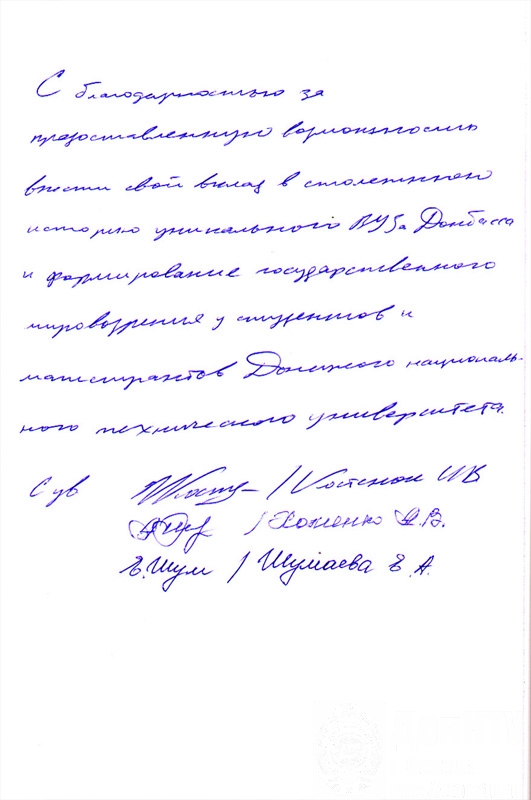 С благодарностью за
предоставленную возможность
внести свой вклад в столетнюю
историю уникального ВУЗа Донбасса
и формирование государственного
мировоззрения у студентов и
магистрантов Донецкого националь-
ного технического университета.
С ув / Костенок И В
/ Хоменко Я.В.
Е.Шум / Шумаева Е. А.